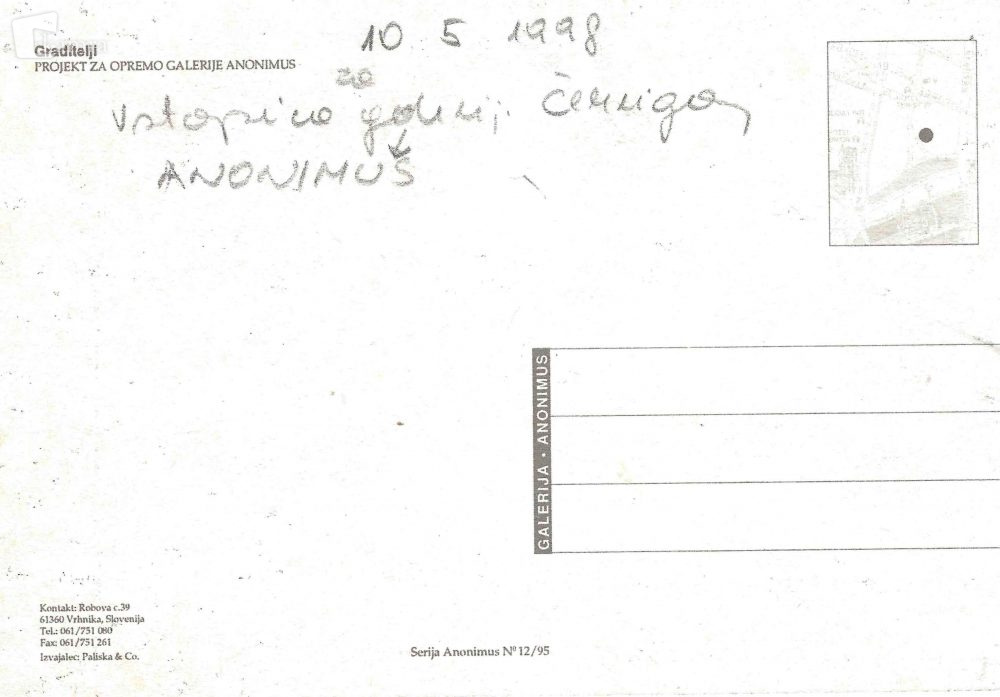 Graditelji
PROJEKT ZA OPREMO GALERIJE ANONIMUS
10 5 1998
za
Vstopnina Černigoj
ANONIMUŠ
GALERIJA • ANONIMUS
Kontakt: Robova c.39
61360 Vrhnika, Slovenija
Tel.: 061/751 080
Fax: 061/751 261
Izvajalec: Paliska & Co.
Serija Anonimus Nº 12/95